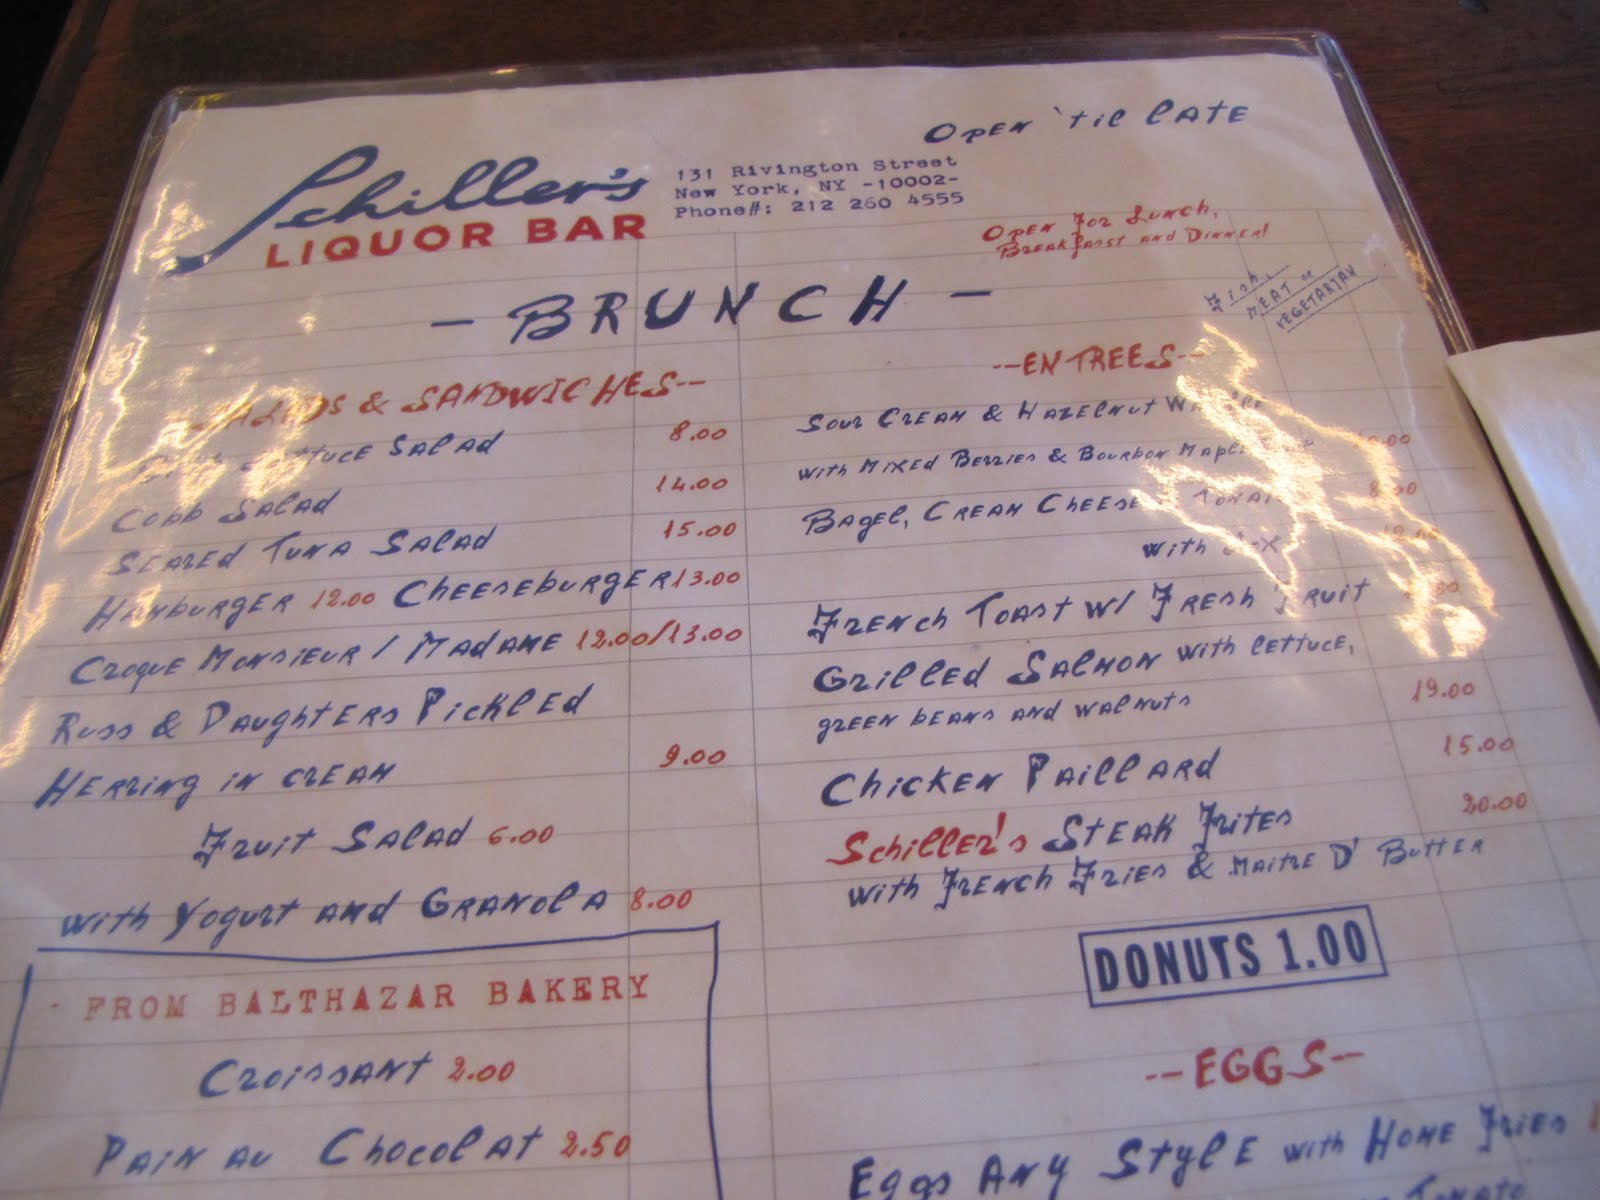 Open 'til late
Schiller's
LIQUOR BAR
131 Rivington Street
New York, NY -10002-
Phone#: 212 260 4555
Open For Lunch,
Breakfast and Dinner!
- BRUNCH -
Fish,
MEAT or
VEGETARIAN
& SANDWICHES--
Lettuce Salad 8.00
Cobb Salad 14.00
Seared Tuna Salad 15.00
Hamburger 12.00 Cheeseburger 13.00
Croque Monsieur / Madame 12.00/13.00
Russ & Daughters Pickled
Herring in cream 9.00
Fruit Salad 6.00
with Yogurt and Granola 8.00
- FROM BALTHAZAR BAKERY
Croissant 2.00
Pain au Chocolat 2.50
--ENTREES--
Sour Cream & Hazelnut
with Mixed Berries & Bourbon Maple
Bagel, Cream Cheese
with Lox
French Toast w/ Fresh Fruit
Grilled Salmon with lettuce,
green beans and walnuts 19.00
Chicken Paillard 15.00
Schiller's Steak Frites 20.00
with French Fries & Maitre D' Butter
DONUTS 1.00
--EGGS--
Eggs Any Style with Home Fries